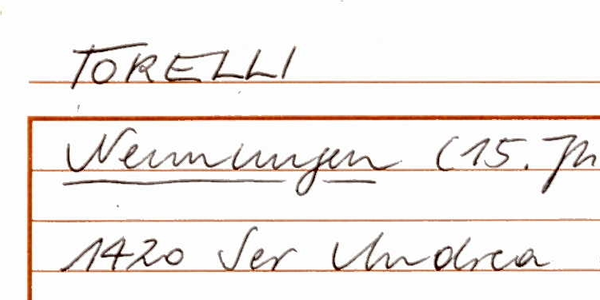 TORELLI
Nennungen (15. Jh
1420 Ser Andrea